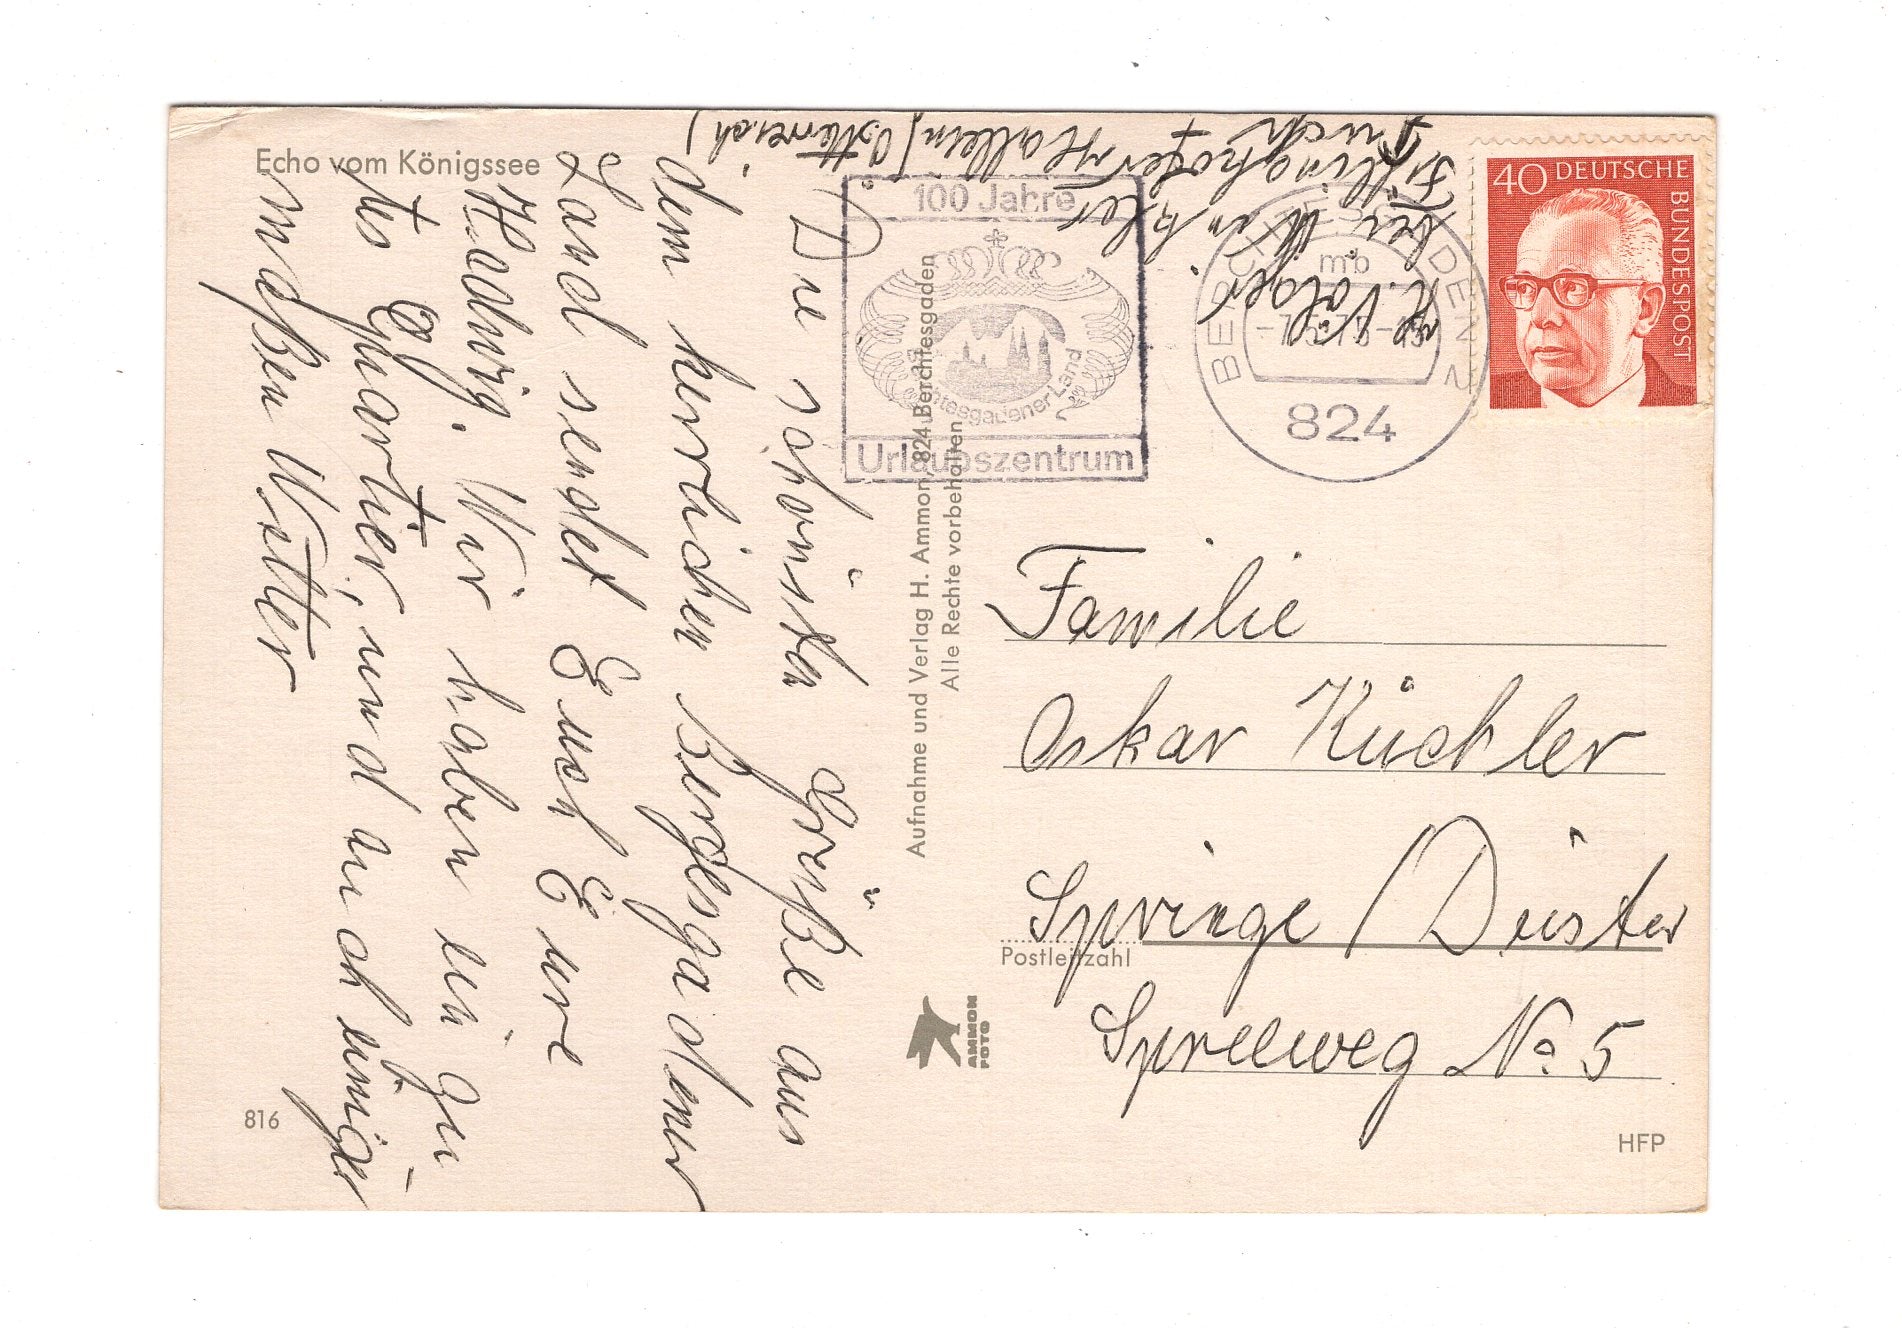 Echo vom Königssee
Die schönsten Grüße aus
dem herrlichen Bergesgadener
Land sendet Euch Eure
Hedwig. Wir haben ein gu-
tes Quartier, und auch einiger-
maßen Wetter
H. Völger
bei Winkler
Hallein (Österreich)
100 Jahre
Berchtesgadener Land
Urlaubszentrum
BERCHTESGADEN 2
mb
824
40 DEUTSCHE
BUNDESPOST
Aufnahme und Verlag H. Ammon, 824 Berchtesgaden
Alle Rechte vorbehalten
Familie
Oskar Küchler
Springe / Deister
Postleitzahl
Spreeweg No 5
AMMON
FOTO
816
HFP